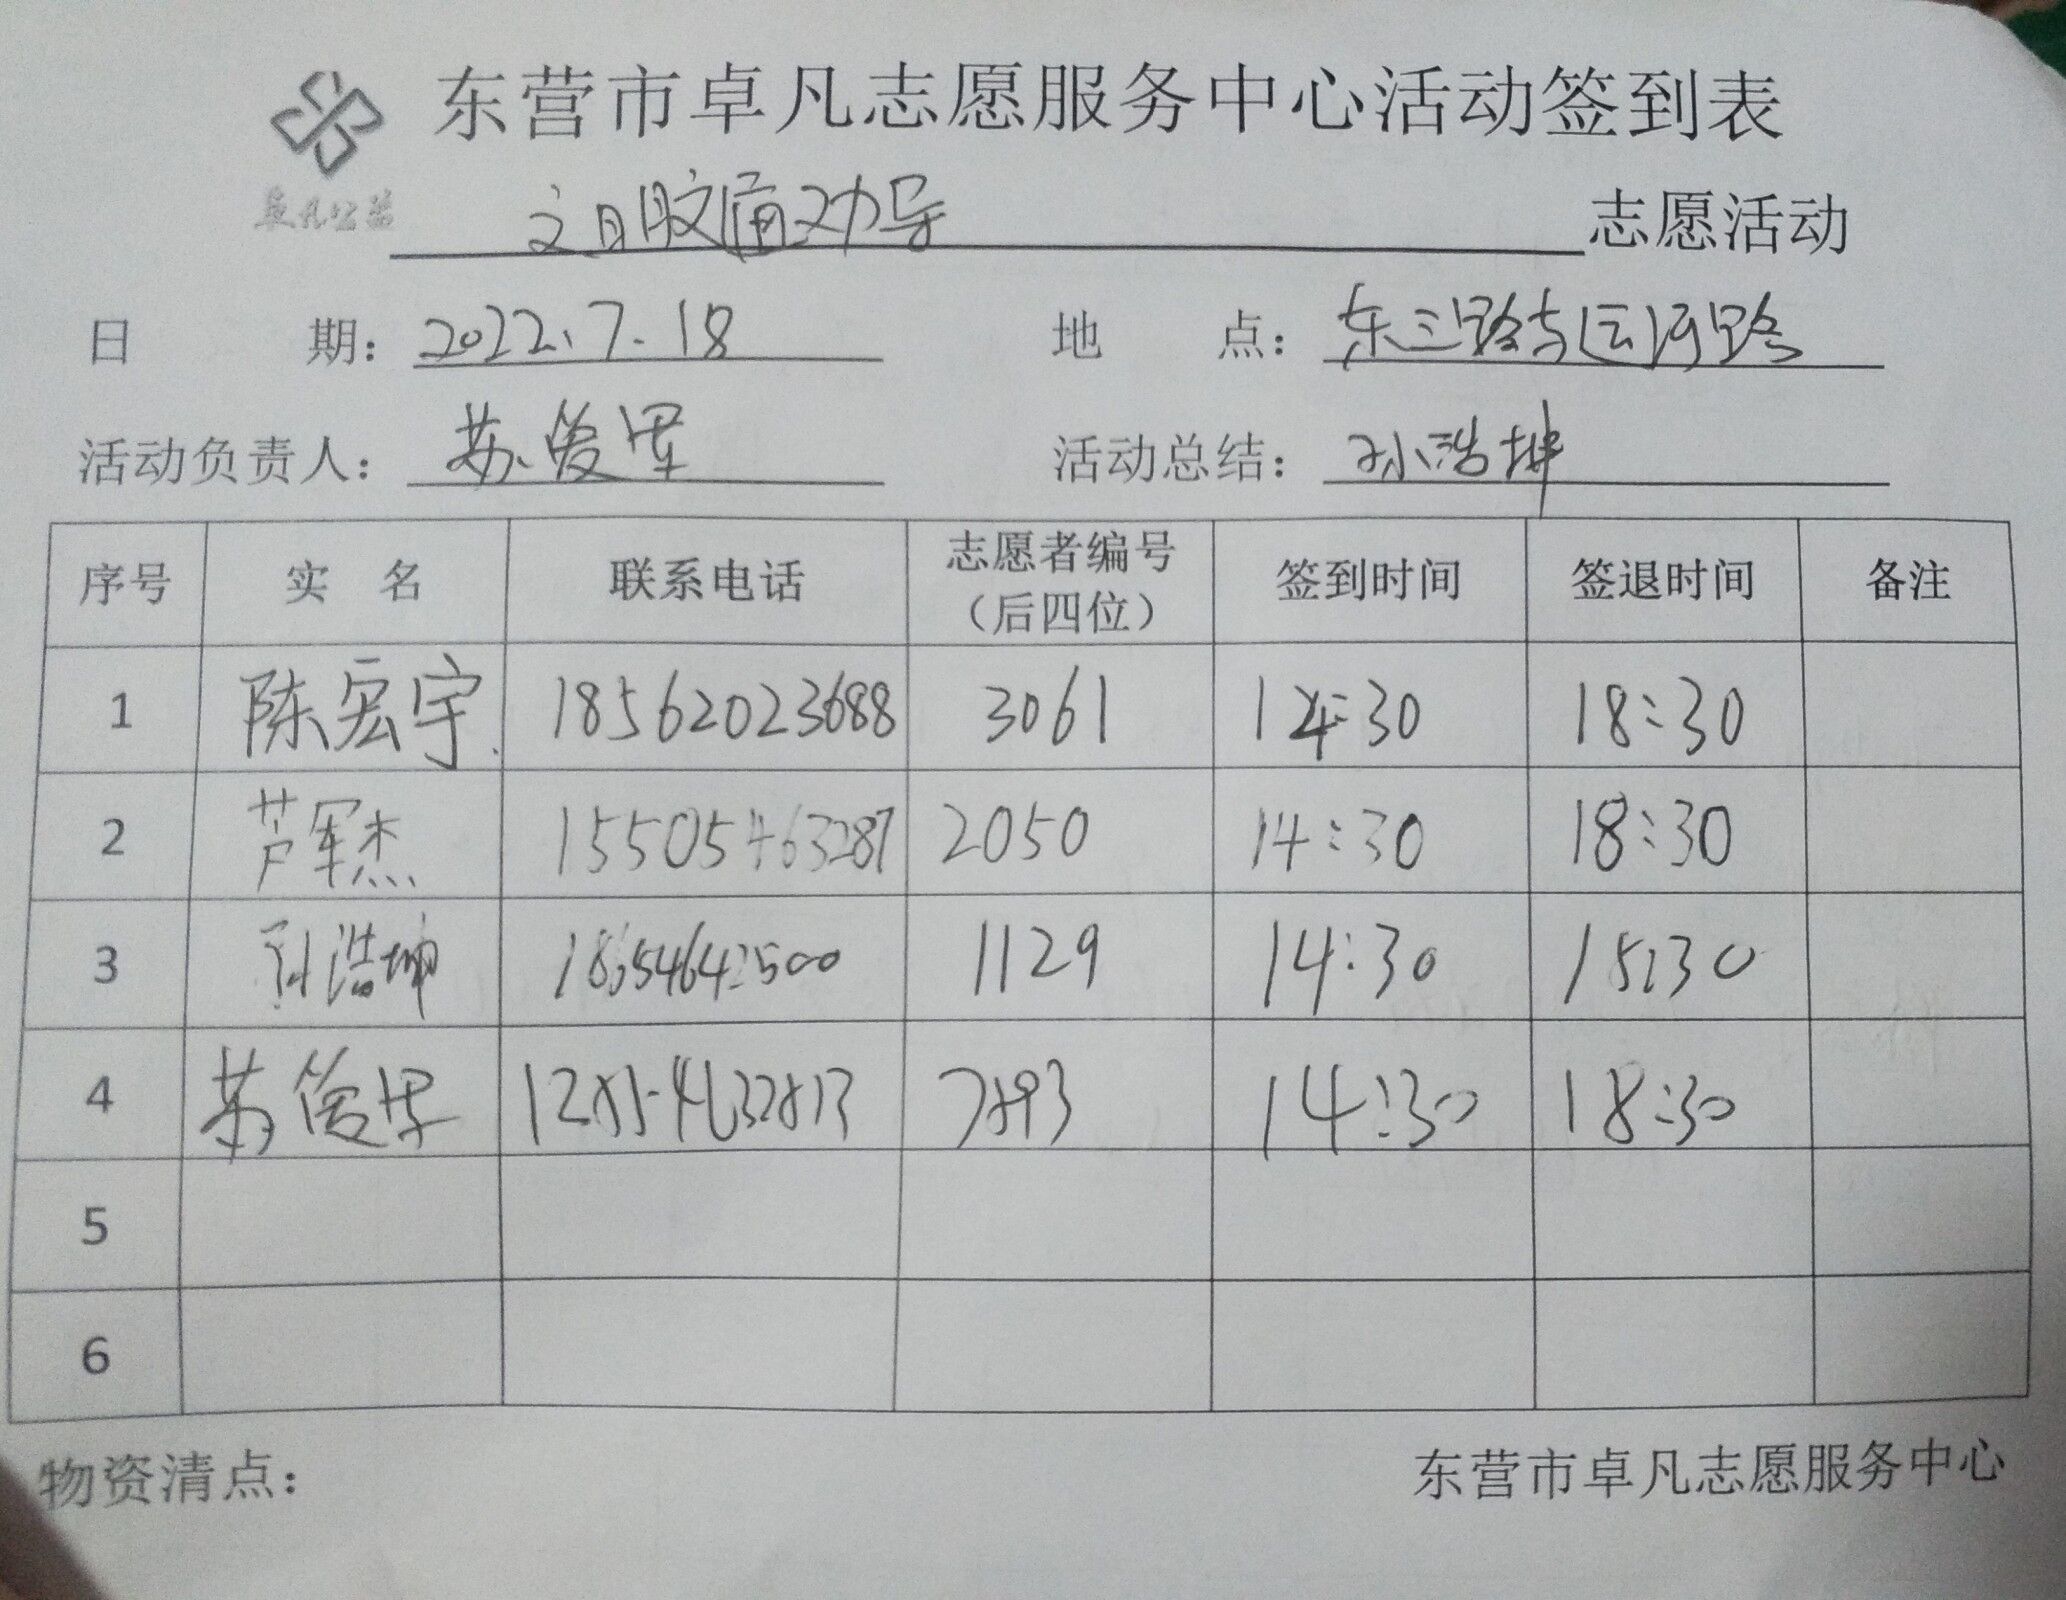 东营市卓凡志愿服务中心活动签到表
卓凡公益
文明交通劝导 志愿活动
日期：2022.7.18 地点：东三路与运河路
活动负责人：苏俊 活动总结：孙浩坤
序号 实名 联系电话 志愿者编号（后四位） 签到时间 签退时间 备注
1 陈宏宇 18562023688 3061 14:30 18:30
2 芦军杰 15505463287 2050 14:30 18:30
3 浩坤 1129 14:30 15:30
4 苏俊 7893 14:30 18:30
5
6
物资清点： 东营市卓凡志愿服务中心